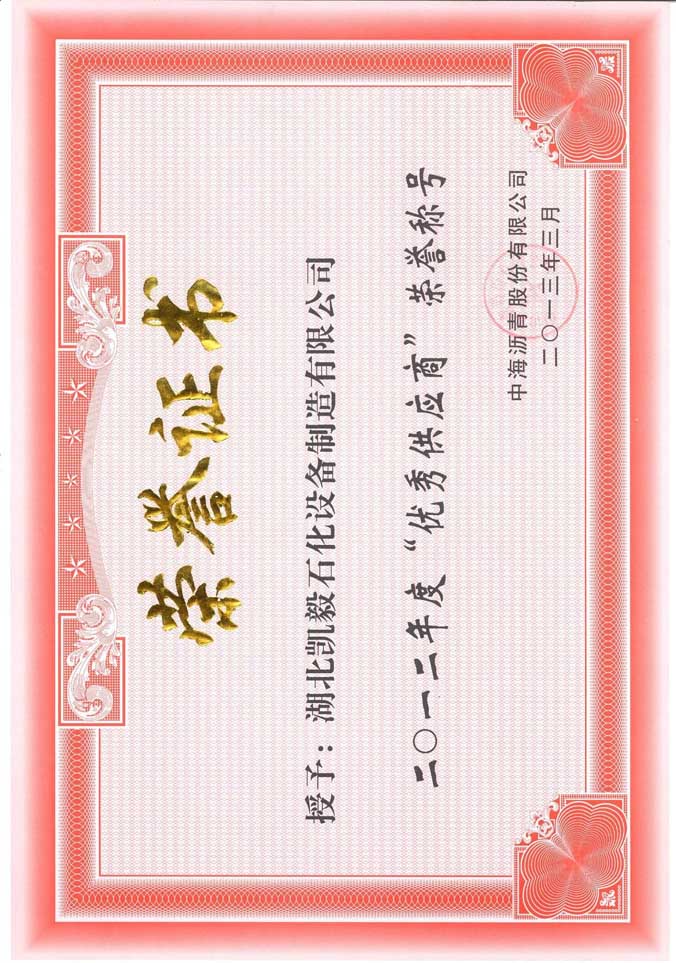 荣誉证书
授予：湖北凯毅石化设备制造有限公司
二〇一二年度“优秀供应商”荣誉称号
中海沥青股份有限公司
二〇一三年三月